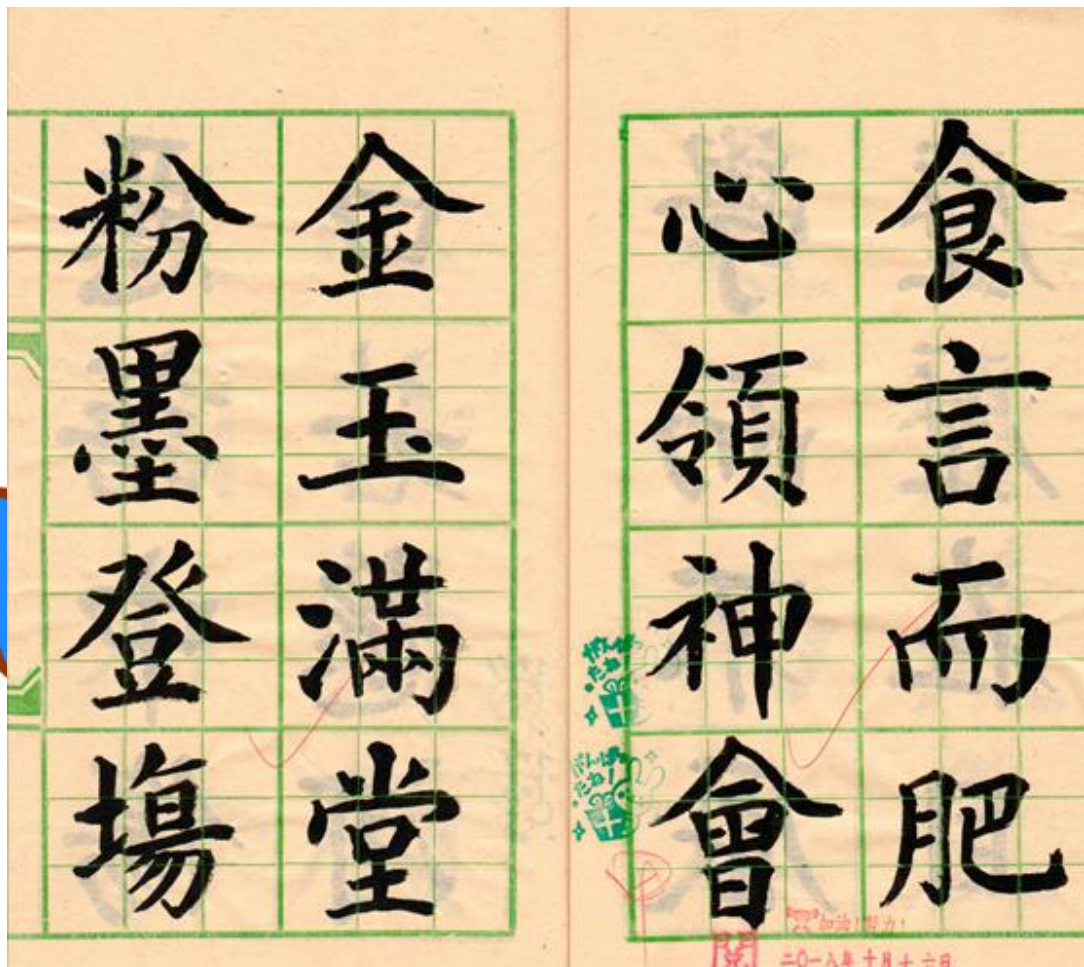 食言而肥
心領神會
金玉滿堂
粉墨登場
加油!努力!
閱
二〇一八年十月十六日